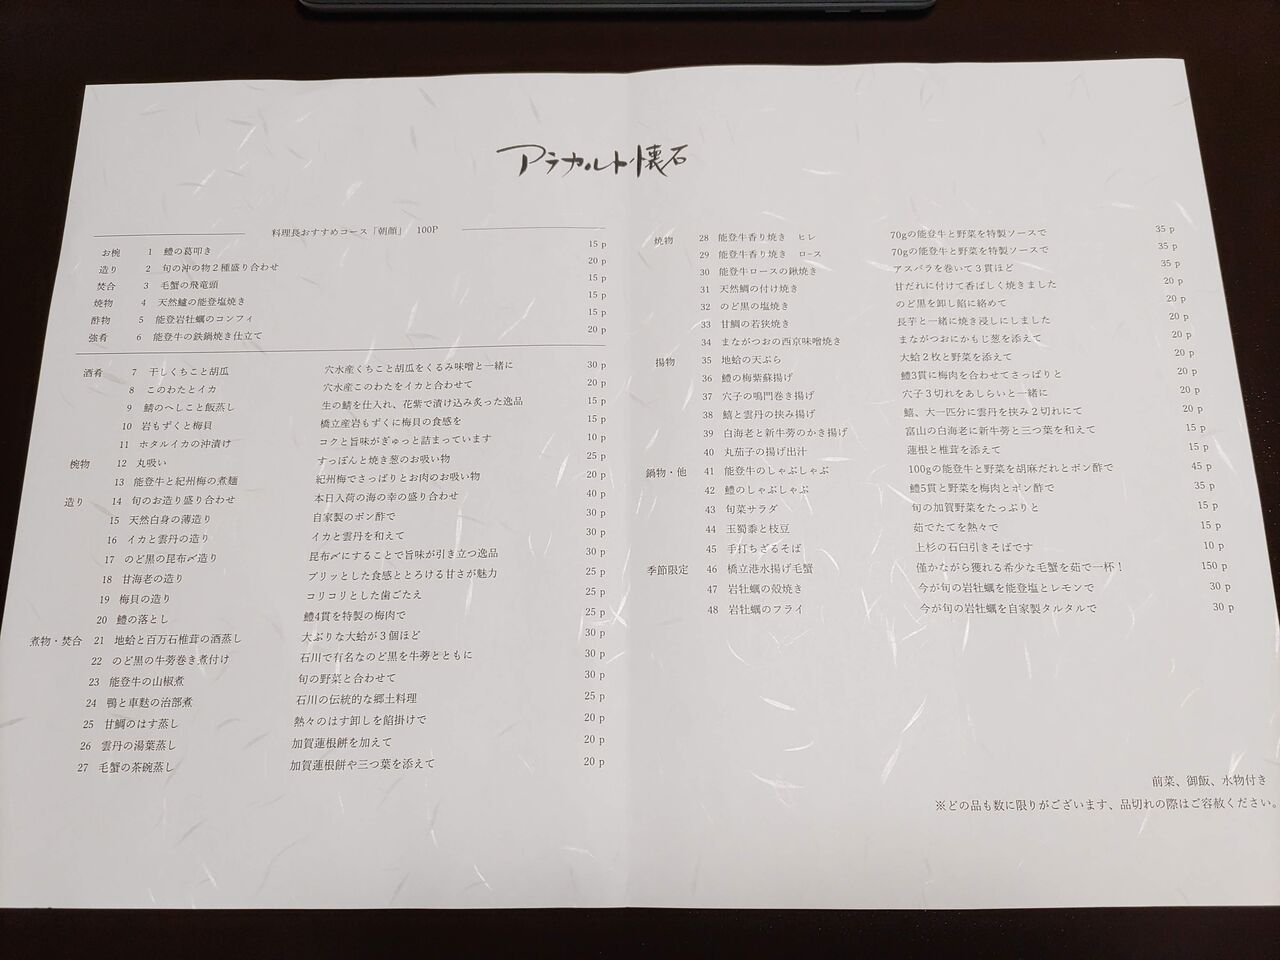 アラカルト懐石
料理長おすすめコース「朝顔」 100P
お椀 1 鱧の葛叩き 15 p
造り 2 旬の沖の物２種盛り合わせ 20 p
焚合 3 毛蟹の飛竜頭 15 p
焼物 4 天然鱸の能登塩焼き 15 p
酢物 5 能登岩牡蠣のコンフィ 15 p
強肴 6 能登牛の鉄鍋焼き仕立て 20 p
酒肴 7 干しくちこと胡瓜 穴水産くちこと胡瓜をくるみ味噌と一緒に 30 p
8 このわたとイカ 穴水産このわたをイカと合わせて 20 p
9 鯖のへしこと飯蒸し 生の鯖を仕入れ、花紫で漬け込み炙った逸品 15 p
10 岩もずくと梅貝 橋立産岩もずくに梅貝の食感を 15 p
11 ホタルイカの沖漬け コクと旨味がぎゅっと詰まっています 10 p
椀物 12 丸吸い すっぽんと焼き葱のお吸い物 15 p
13 能登牛と紀州梅の煮麺 紀州梅でさっぱりとお肉のお吸い物 20 p
造り 14 旬のお造り盛り合わせ 本日入荷の海の幸の盛り合わせ 40 p
15 天然白身の薄造り 自家製のポン酢で 30 p
16 イカと雲丹の造り イカと雲丹を和えて 30 p
17 のど黒の昆布〆造り 昆布〆にすることで旨味が引き立つ逸品 30 p
18 甘海老の造り プリッとした食感ととろける甘さが魅力 25 p
19 梅貝の造り コリコリとした歯ごたえ 25 p
20 鱧の落とし 鱧4貫を特製の梅肉で 25 p
煮物・焚合 21 地蛤と百万石椎茸の酒蒸し 大ぶりな大蛤が３個ほど 30 p
22 のど黒の牛蒡巻き煮付け 石川で有名なのど黒を牛蒡とともに 30 p
23 能登牛の山椒煮 旬の野菜と合わせて 30 p
24 鴨と車麩の治部煮 石川の伝統的な郷土料理 25 p
25 甘鯛のはす蒸し 熱々のはす卸しを餡掛けで 20 p
26 雲丹の湯葉蒸し 加賀蓮根餅を加えて 20 p
27 毛蟹の茶碗蒸し 加賀蓮根餅や三つ葉を添えて 20 p
焼物 28 能登牛香り焼き ヒレ 70gの能登牛と野菜を特製ソースで 35 p
29 能登牛香り焼き ロース 70gの能登牛と野菜を特製ソースで 35 p
30 能登牛ロースの鍬焼き アスパラを巻いて３貫ほど 35 p
31 天然鯛の付け焼き 甘だれに付けて香ばしく焼きました 20 p
32 のど黒の塩焼き のど黒を卸し餡に絡めて 20 p
33 甘鯛の若狭焼き 長芋と一緒に焼き浸しにしました 20 p
34 まながつおの西京味噌焼き まながつおにかもじ葱を添えて 20 p
揚物 35 地蛤の天ぷら 大蛤２枚と野菜を添えて 20 p
36 鱧の梅紫蘇揚げ 鱧3貫に梅肉を合わせてさっぱりと 20 p
37 穴子の鳴門巻き揚げ 穴子３切れをあしらいと一緒に 20 p
38 鱚と雲丹の挟み揚げ 鱚、大一匹分に雲丹を挟み２切れにて 20 p
39 白海老と新牛蒡のかき揚げ 富山の白海老に新牛蒡と三つ葉を和えて 15 p
40 丸茄子の揚げ出汁 蓮根と椎茸を添えて 15 p
鍋物・他 41 能登牛のしゃぶしゃぶ 100gの能登牛と野菜を胡麻だれとポン酢で 45 p
42 鱧のしゃぶしゃぶ 鱧5貫と野菜を梅肉とポン酢で 35 p
43 旬菜サラダ 旬の加賀野菜をたっぷりと 15 p
44 玉蜀黍と枝豆 茹でたてを熱々で 15 p
45 手打ちざるそば 上杉の石臼引きそばです 10 p
季節限定 46 橋立港水揚げ毛蟹 僅かながら獲れる希少な毛蟹を茹で一杯！ 150 p
47 岩牡蠣の殻焼き 今が旬の岩牡蠣を能登塩とレモンで 30 p
48 岩牡蠣のフライ 今が旬の岩牡蠣を自家製タルタルで 30 p
前菜、御飯、水物付き
※どの品も数に限りがございます、品切れの際はご容赦ください。